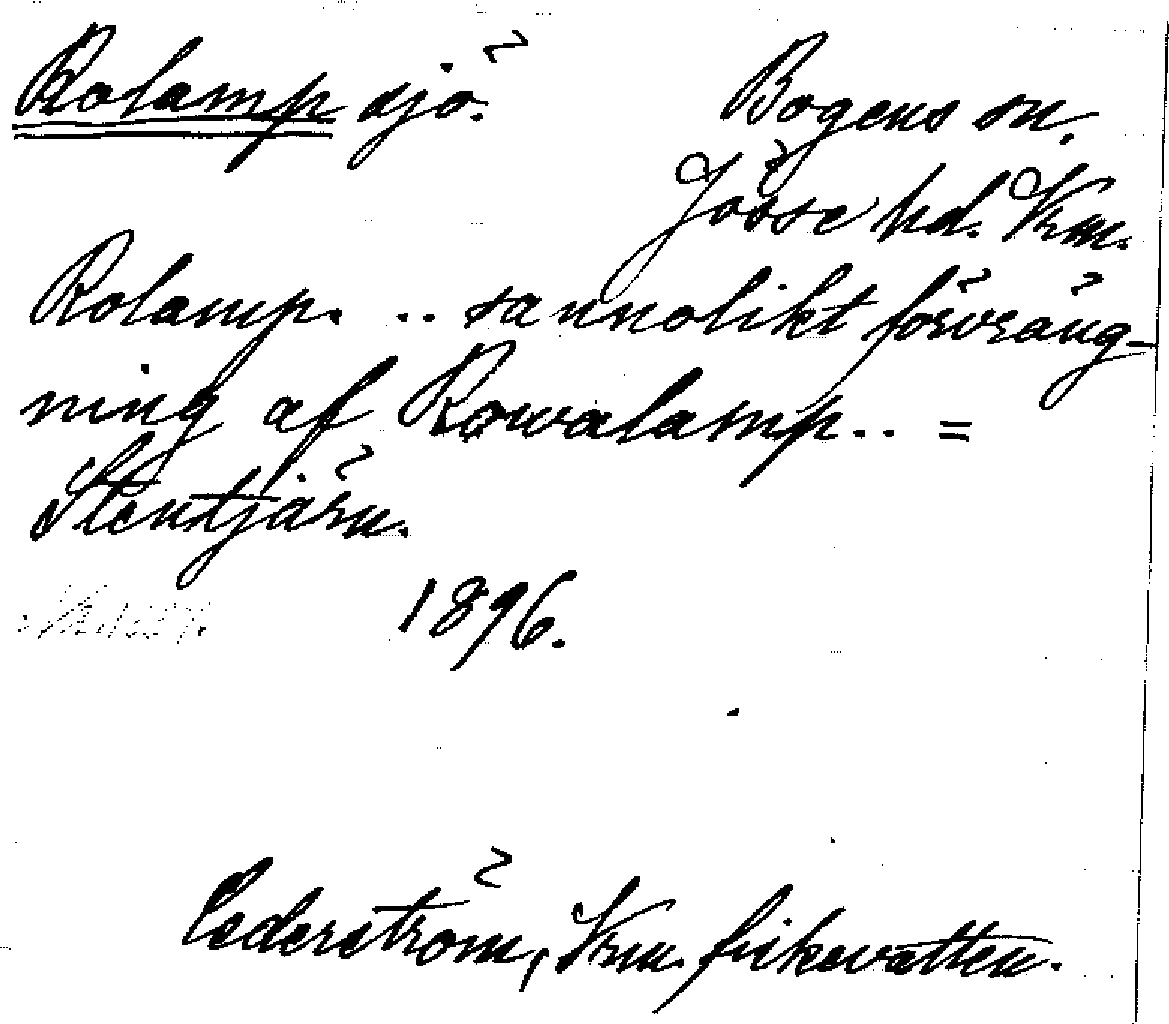 Rolamp sjö.
Bogens sn.
Jösse hd. Vrm.
Rolamp. .. sannolikt förvräng-
ning af Rowalamp.. =
Stentjärn.
1896.
Cederström, Vrm. fiskevatten.